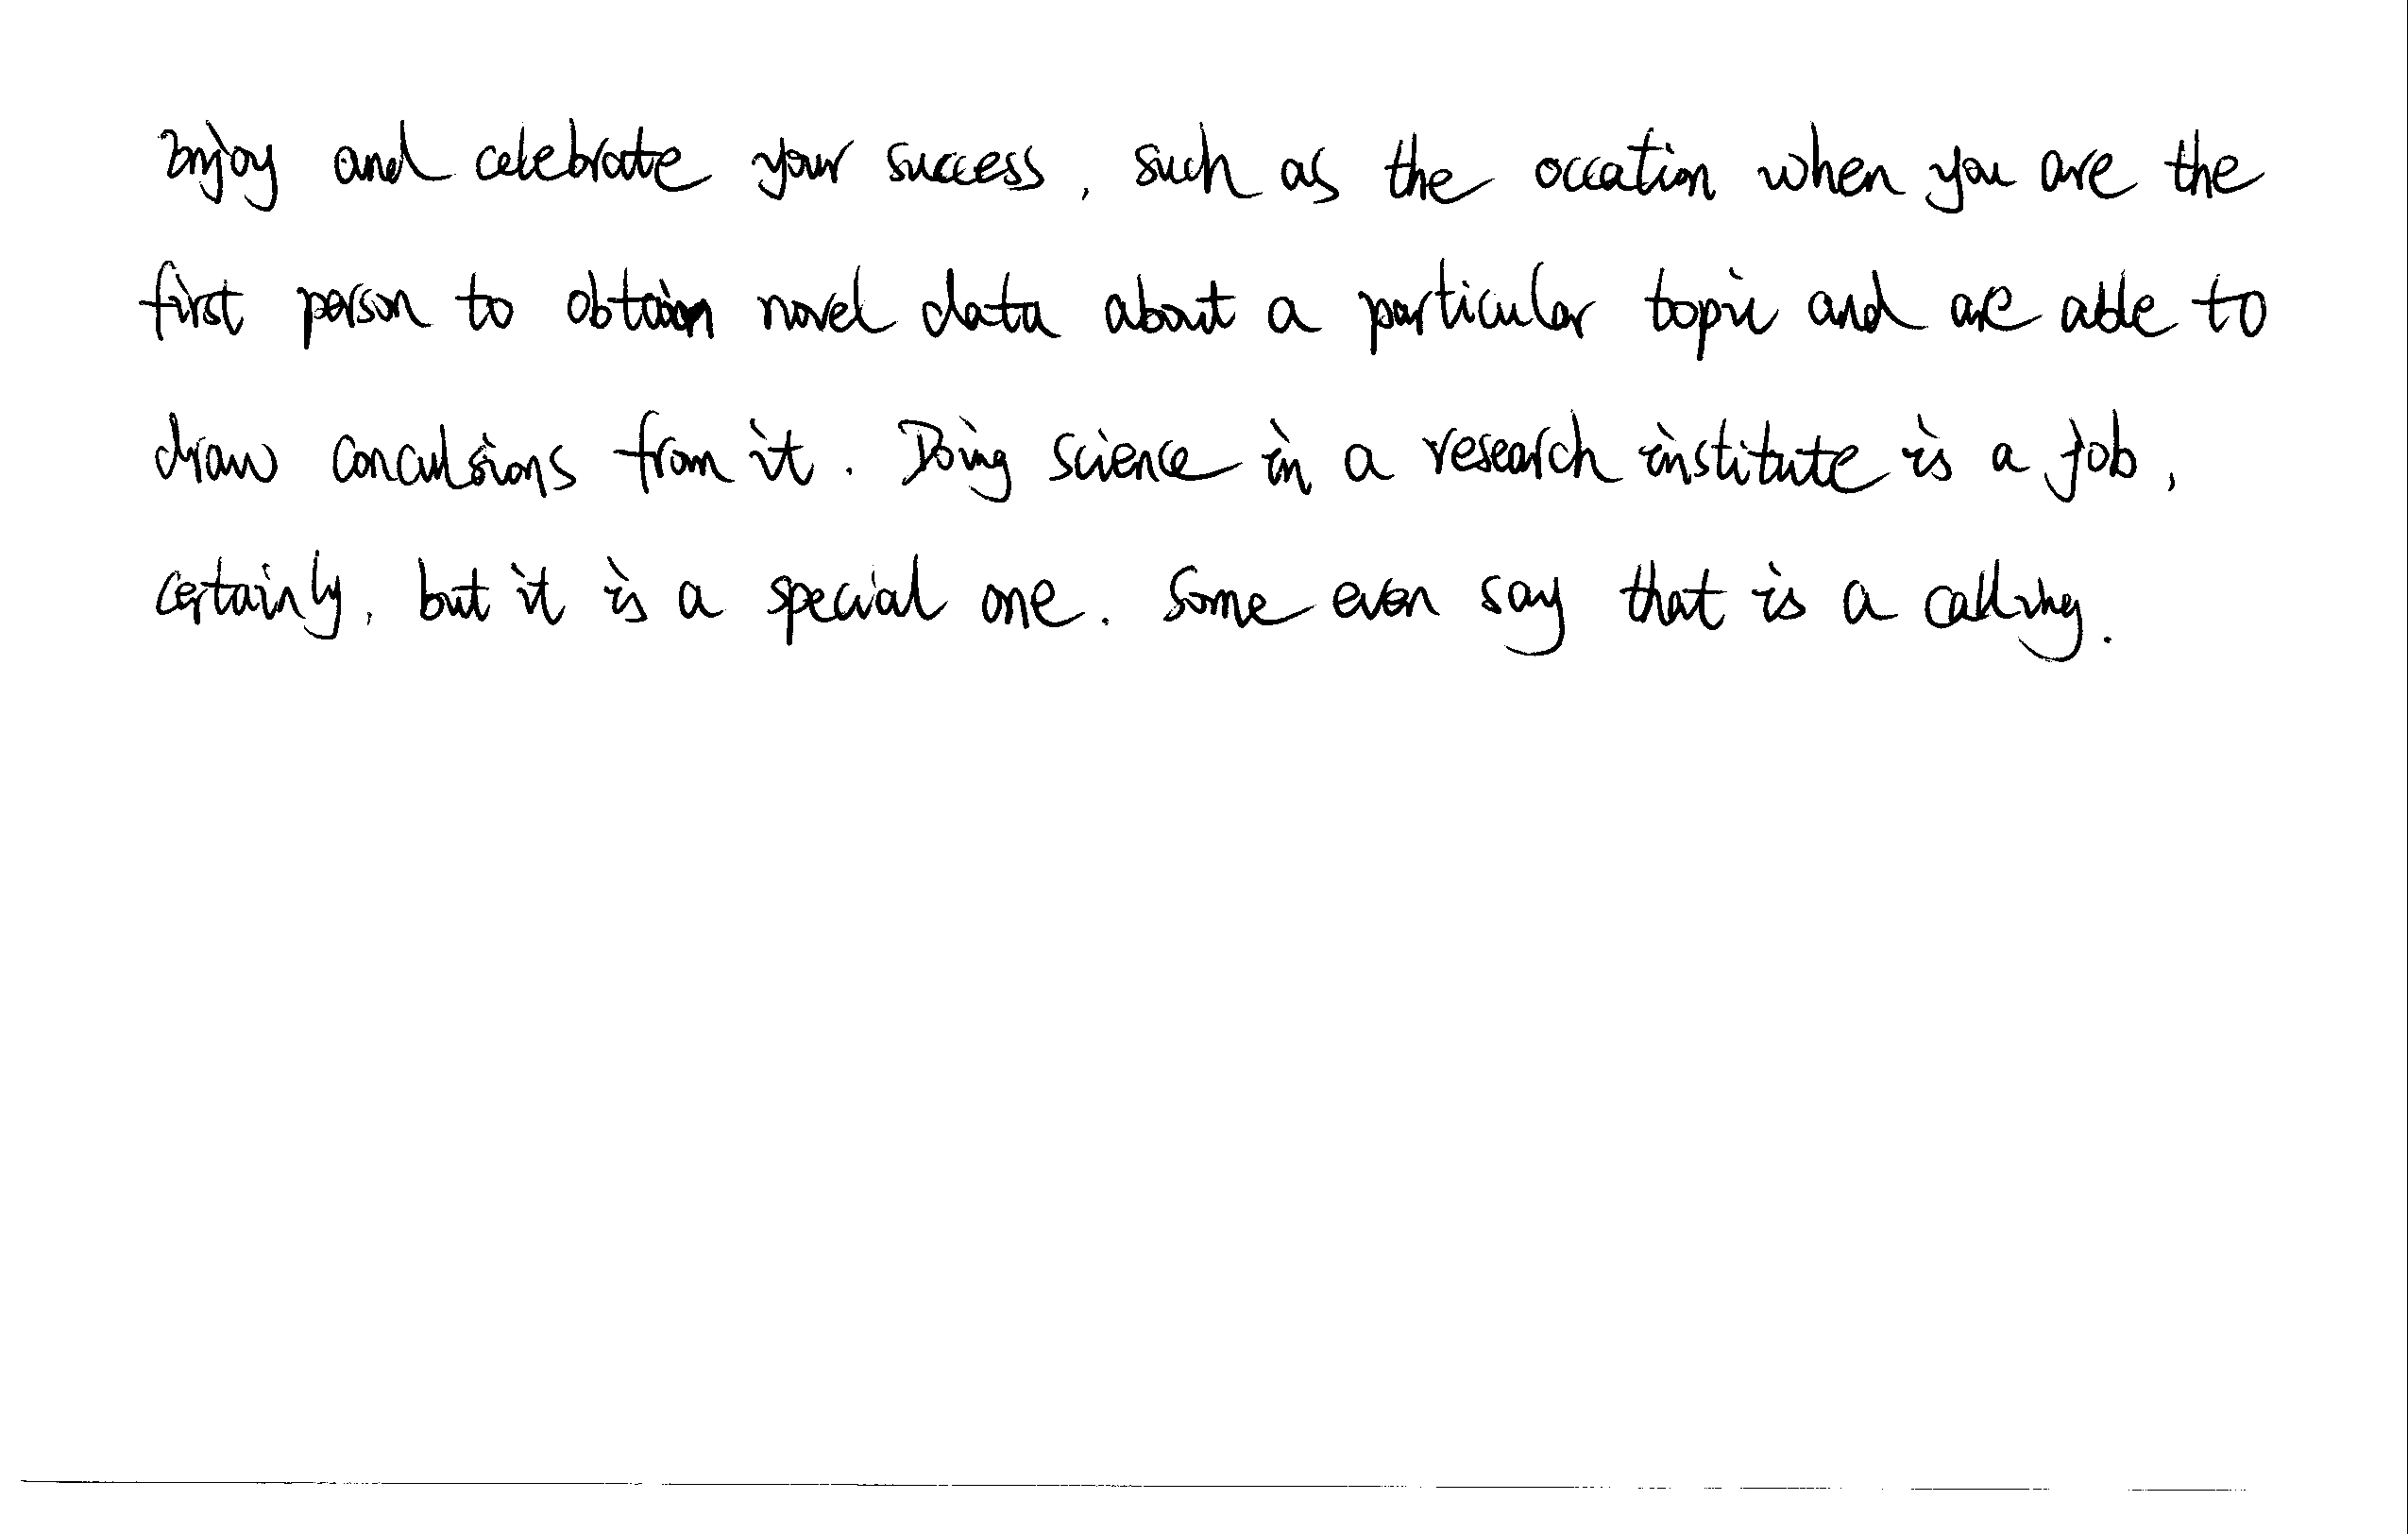 Enjoy and celebrate your success, such as the occation when you are the
first person to obtain novel data about a particular topic and are able to
draw conculsions from it. Doing science in a research institute is a job,
certainly, but it is a special one. Some even say that is a calling.